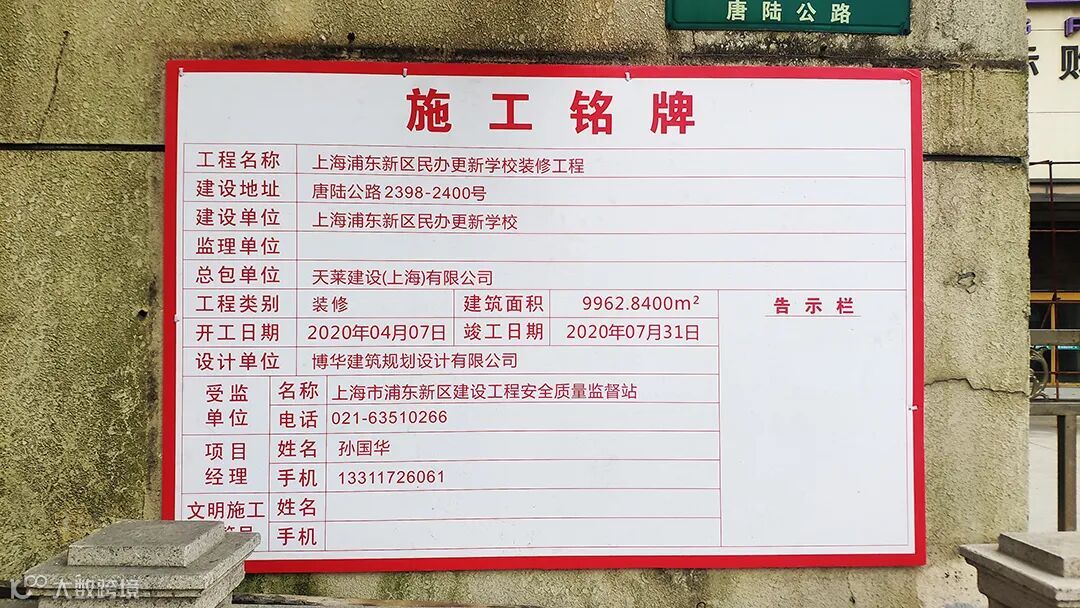 唐陆公路
施工铭牌
工程名称 上海浦东新区民办更新学校装修工程
建设地址 唐陆公路2398-2400号
建设单位 上海浦东新区民办更新学校
监理单位
总包单位 天莱建设(上海)有限公司
工程类别 装修 建筑面积 9962.8400m²
告示栏
开工日期 2020年04月07日 竣工日期 2020年07月31日
设计单位 博华建筑规划设计有限公司
受监单位 名称 上海市浦东新区建设工程安全质量监督站
电话 021-63510266
项目经理 姓名 孙国华
手机 13311726061
文明施工 姓名
手机
大数跨境